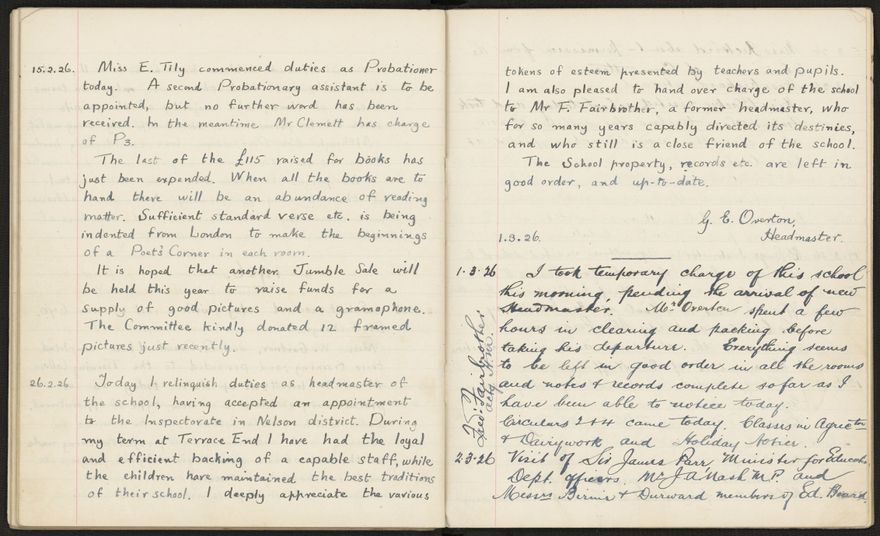 15.2.26. Miss E. Tily commenced duties as Probationer
today. A second Probationary assistant is to be
appointed, but no further word has been
received. In the meantime Mr Clemett has charge
of P3.
The last of the £115 raised for books has
just been expended. When all the books are to
hand there will be an abundance of reading
matter. Sufficient standard verse etc. is being
indented from London to make the beginnings
of a Poet's Corner in each room.
It is hoped that another Jumble Sale will
be held this year to raise funds for a
supply of good pictures and a gramophone.
The Committee kindly donated 12 framed
pictures just recently.
26.2.26. Today I relinquish duties as headmaster of
the school, having accepted an appointment
to the Inspectorate in Nelson district. During
my term at Terrace End I have had the loyal
and efficient backing of a capable staff, while
the children have maintained the best traditions
of their school. I deeply appreciate the various
tokens of esteem presented by teachers and pupils.
I am also pleased to hand over charge of the school
to Mr F. Fairbrother, a former headmaster, who
for so many years capably directed its destinies,
and who still is a close friend of the school.
The School property, records etc. are left in
good order, and up-to-date.
G. E. Overton,
1.3.26. Headmaster.
1.3.26 I took temporary charge of this school
this morning, pending the arrival of new
Headmaster. Mr Overton spent a few
hours in clearing and packing before
taking his departure. Everything seems
to be left in good order in all the rooms
and notes & records complete so far as I
have been able to notice today.
Circulars 2 & 4 came today. Classes in Agricltr
& Dairywork and Holiday Notice.
Fred: Fairbrother
2.3.26 Visit of Sir James Parr Minister for Education
Dept. officers. Mr J A Nash M.P. and
Messrs & Durward members of Ed. Board.